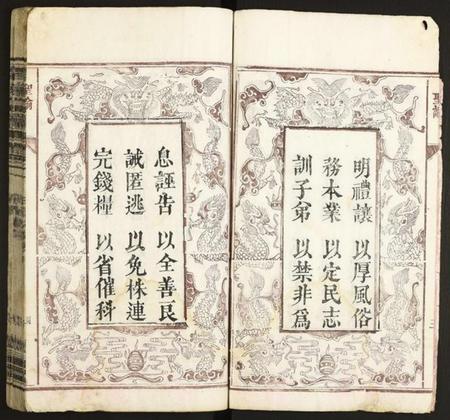 明禮讓 以厚風俗
務本業 以定民志
訓子弟 以禁非為
息誣告 以全善良
誡匿逃 以免株連
完錢糧 以省催科
聖諭